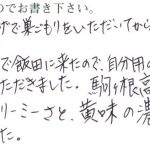 のでお書き下さい。
げで巣ごもりをいただいてから
で飯田に来たので、自分用の
ただきました。駒ヶ根高
リーミーさと、黄味の濃
た。